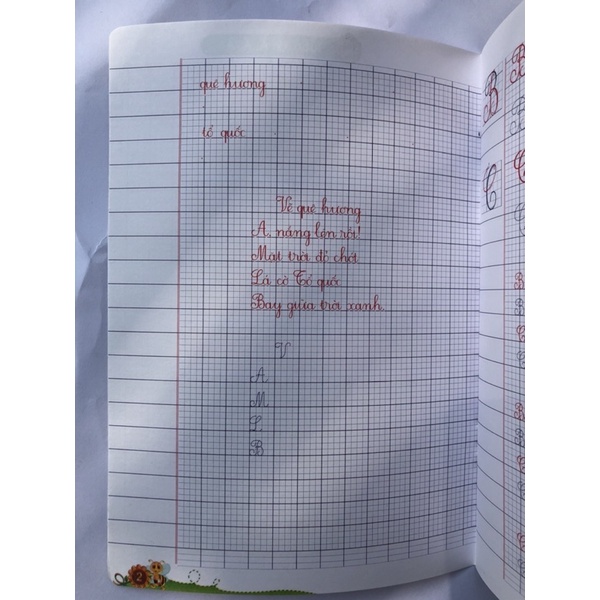 quê hương
tổ quốc
Vẽ quê hương
A, nắng lên rồi!
Mặt trời đỏ chót
Lá cờ Tổ quốc
Bay giữa trời xanh.
V
A
M
L
B
2
B
B
B
C
C